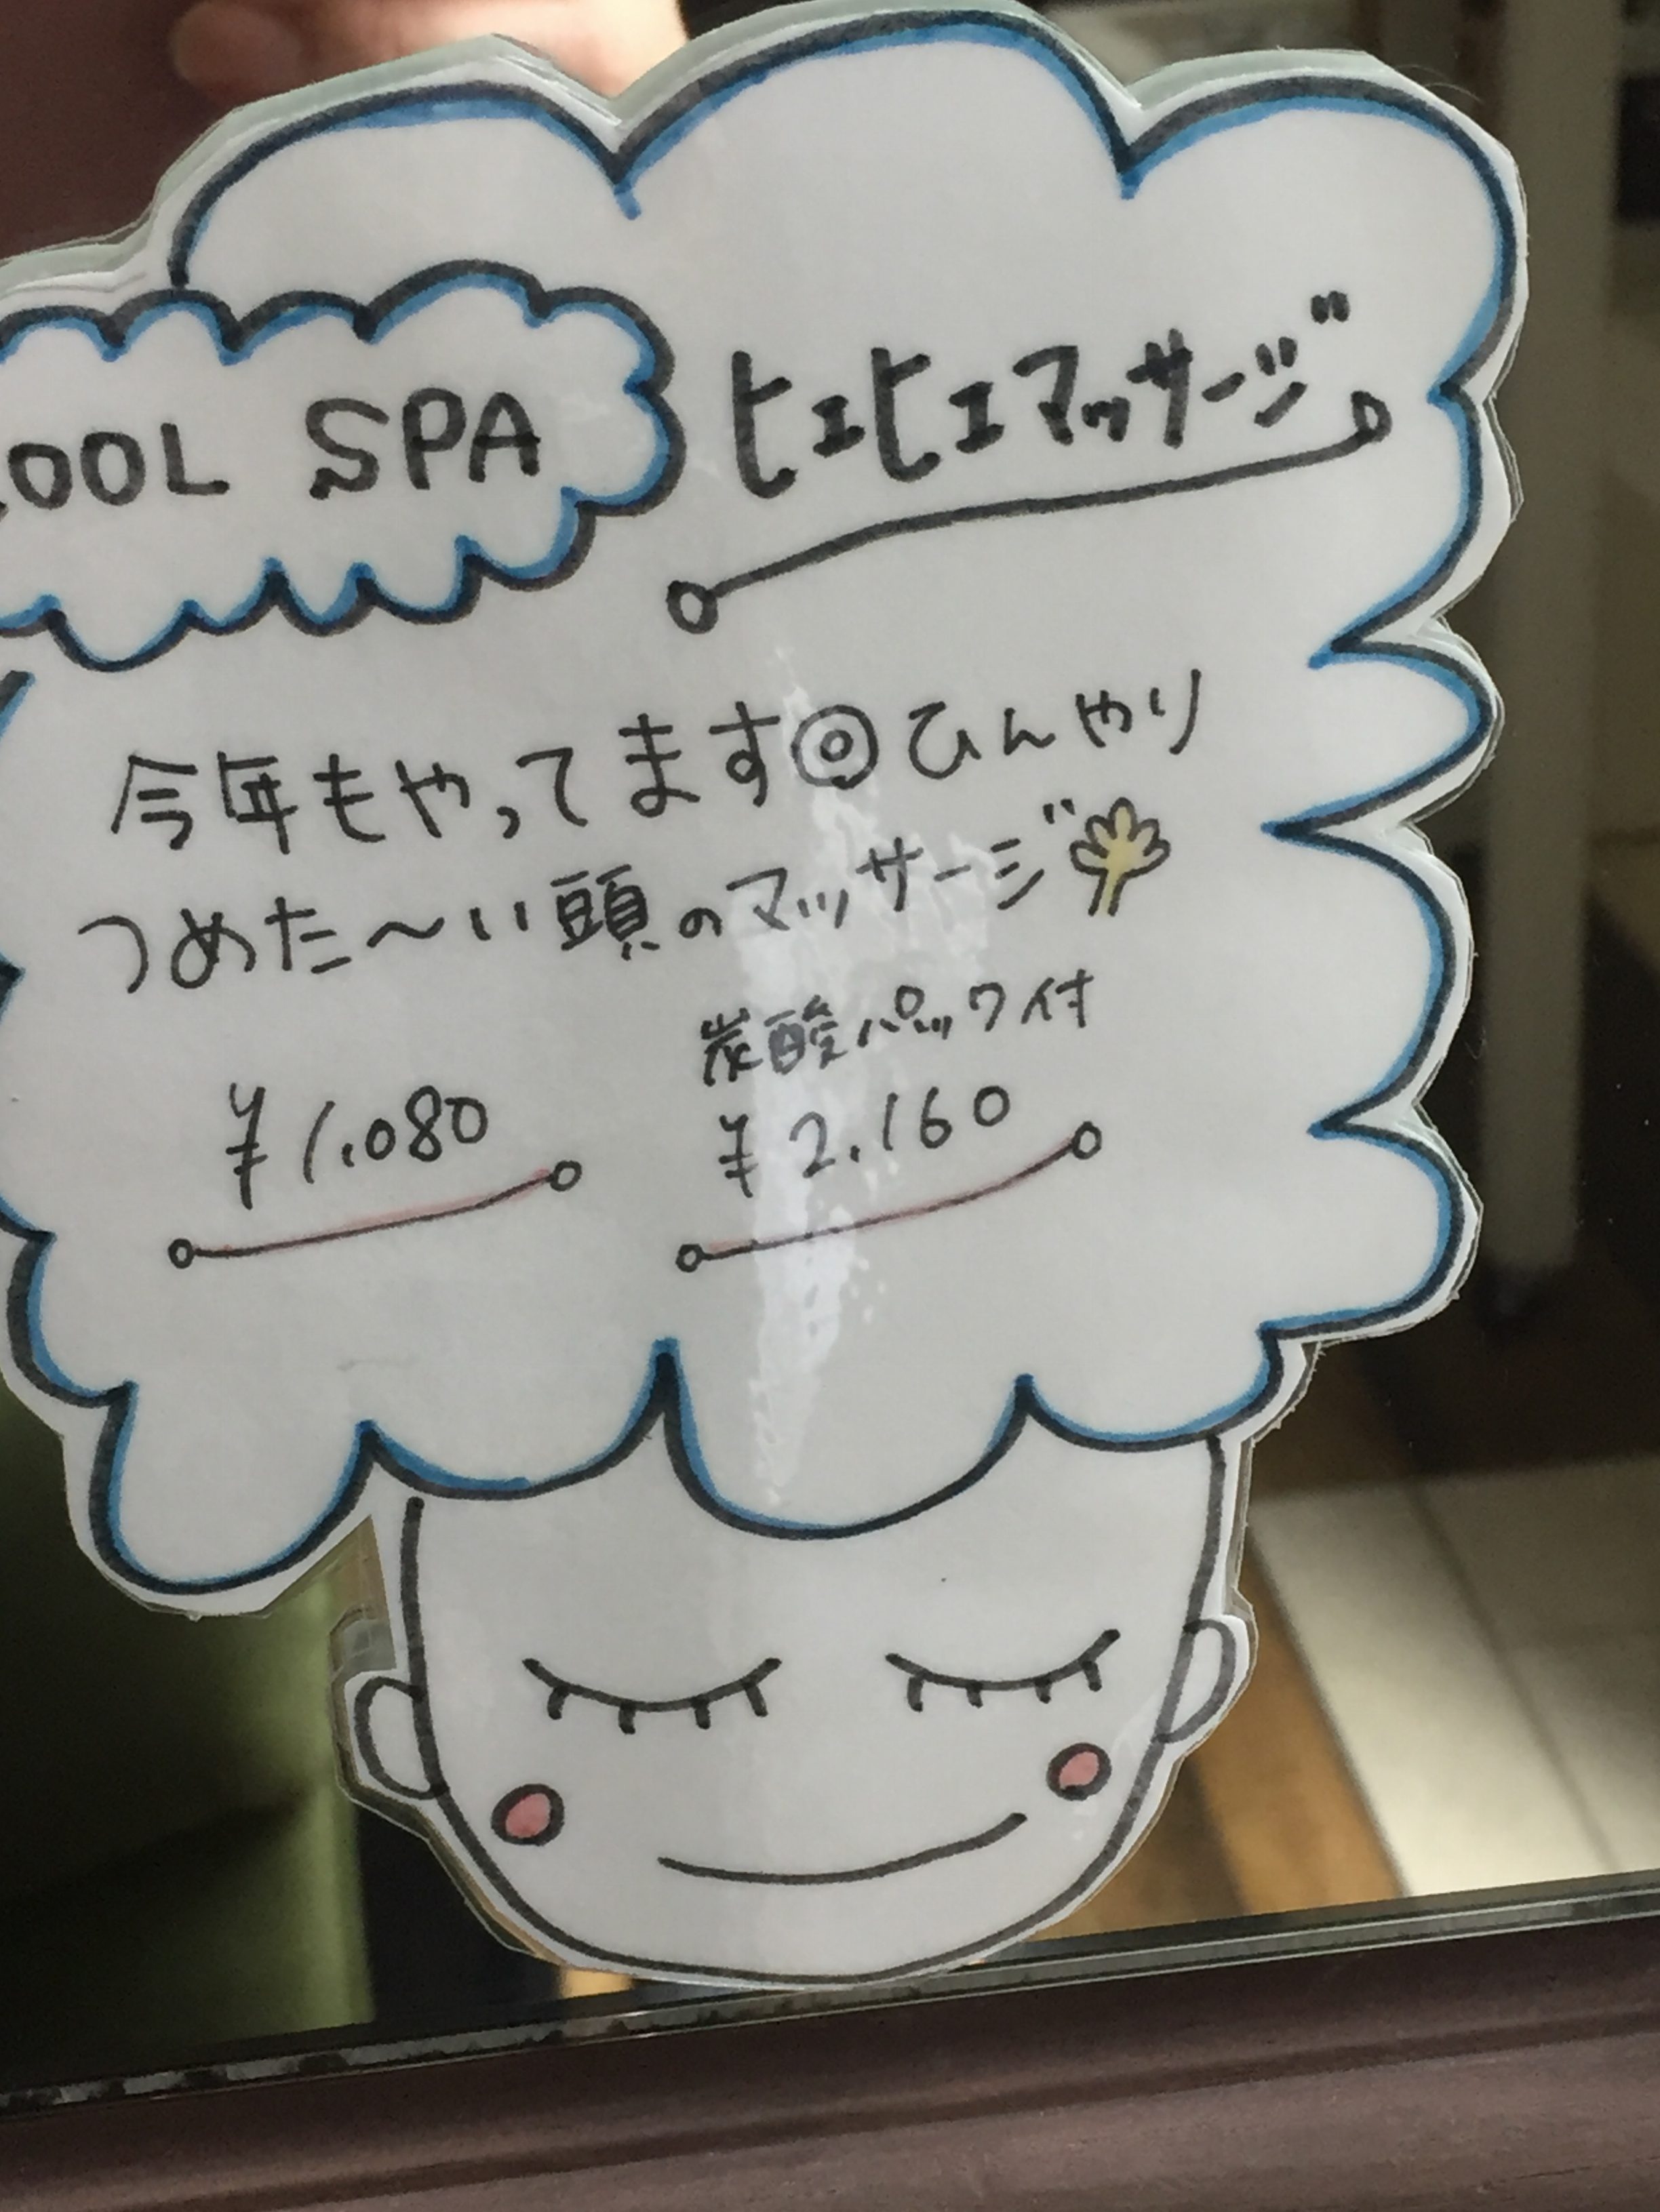 COOL SPA
ヒエヒエマッサージ
今年もやってます◎ひんやり
つめた〜い頭のマッサージ
炭酸パック付
¥1.080
¥2.160